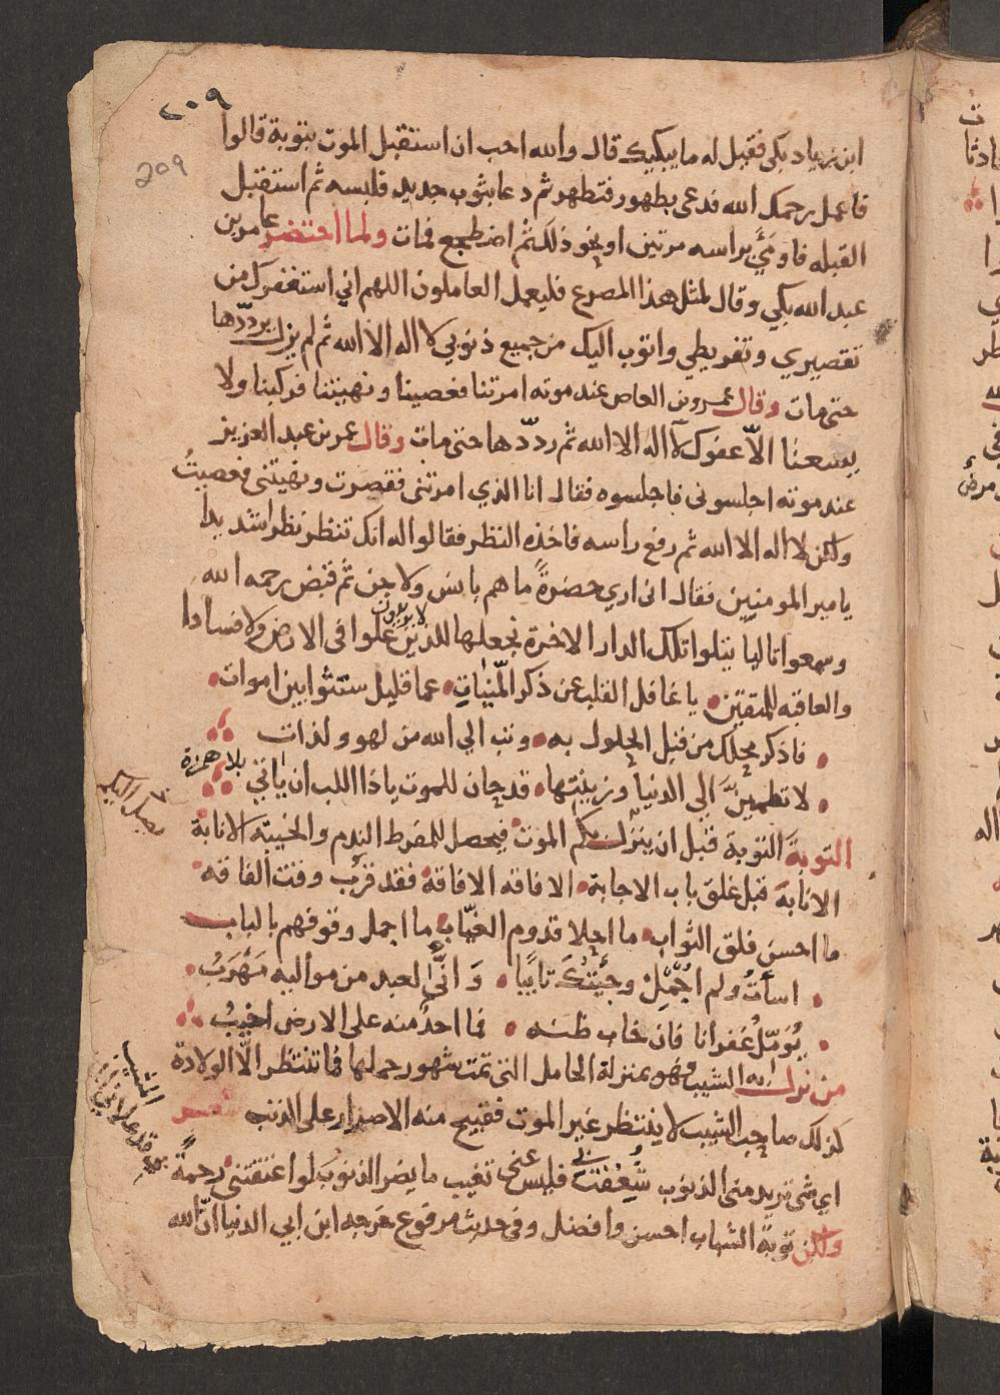 ٢٠٩
209
ابن زياد بكى فقيل له ما يبكيك قال والله احب ان استقبل الموت بتوبة قالوا
فاعمل رحمك الله فدعى بطهور فتطهر ثم دعا بثوب جديد فلبسه ثم استقبل
القبله فاومَي براسه مرتين او نحو ذلك ثم اضطجع فمات ولما احتضر عامر بن
عبد الله بكي وقال لمثل هذا المصرع فليعمل العاملون اللهم اني استغفرك من
تقصيري وتفريطي واتوب اليك من جميع ذنوبي لا اله الا الله ثم لم يزل يردّدها
حتى مات وقال عمرو بن العاص عند موته امرتنا فعصينا ونهيتنا فركبنا ولا
يسعنا الاّ عفوك لآ اله الا الله ثم ردّدها حتى مات وقال عمر بن عبد العزيز
عند موته اجلسوني فاجلسوه فقال انا الذي امرتني فقصرت ونهيتني فعصيتُ
ولكن لا اله الا الله ثم رفع راسه فاخذه النظر فقالوا له انك تنظر نظرا شديدا
يامير المومنين فقال اني اري حضرةً ما هم بانس ولا جن ثم قبض رحمه الله
وسمعوا تاليا يتلوا تلك الدار الاخرة نجعلها للذين لا يريدون علوا في الارض ولا فسادا
والعاقبه للمتقين يا غافل القلب عن ذكر المنيات عما قليل ستثوا بين اموات
فاذكر محلك من قبل الحلول به وتب الي الله من لهو ولذات
لا تطمين الي الدنيا وزينتها قد حان للموت ياذا اللب ان ياتي بلا همزة
التوبة التوبة قبل ان ينزل بكم الموت فيحصل للمفرط الندم والخيبة الانابة
الانابة قبل غلق باب الاجابة الافاقه الافاقة فقد قرب وقت الفاقه
ما احسن قلق التواب ما احلا قدوم الغيّاب ما اجمل وقوفهم بالباب
اسأتُ ولم اُجْمِلْ وجيتُكَ تايبًا وَانّىٰ لعبد من مواليه مَهْرَبُ
يُومّلُ غفرانا فان خاب ظنه فما احدٌ منه على الارض اخيبُ
من نزل به الشيب فهو بمنزلة الحامل التي تمت شهور حملها فما تنتظر الاّ الولادة
كذلك صاحب الشيب لا ينتظر غير الموت فقبيح منه الاصرار على الذنب شعر
اي شي تريد مني الذنوب شُغِفَتْ بي فليس عني تغيب ما يضر الذنوب لو اعتقتني رحمةً
ولكن توبة الشباب احسن وافضل وفي حديث مرفوع خرجه ابن ابي الدنيا انّ الله